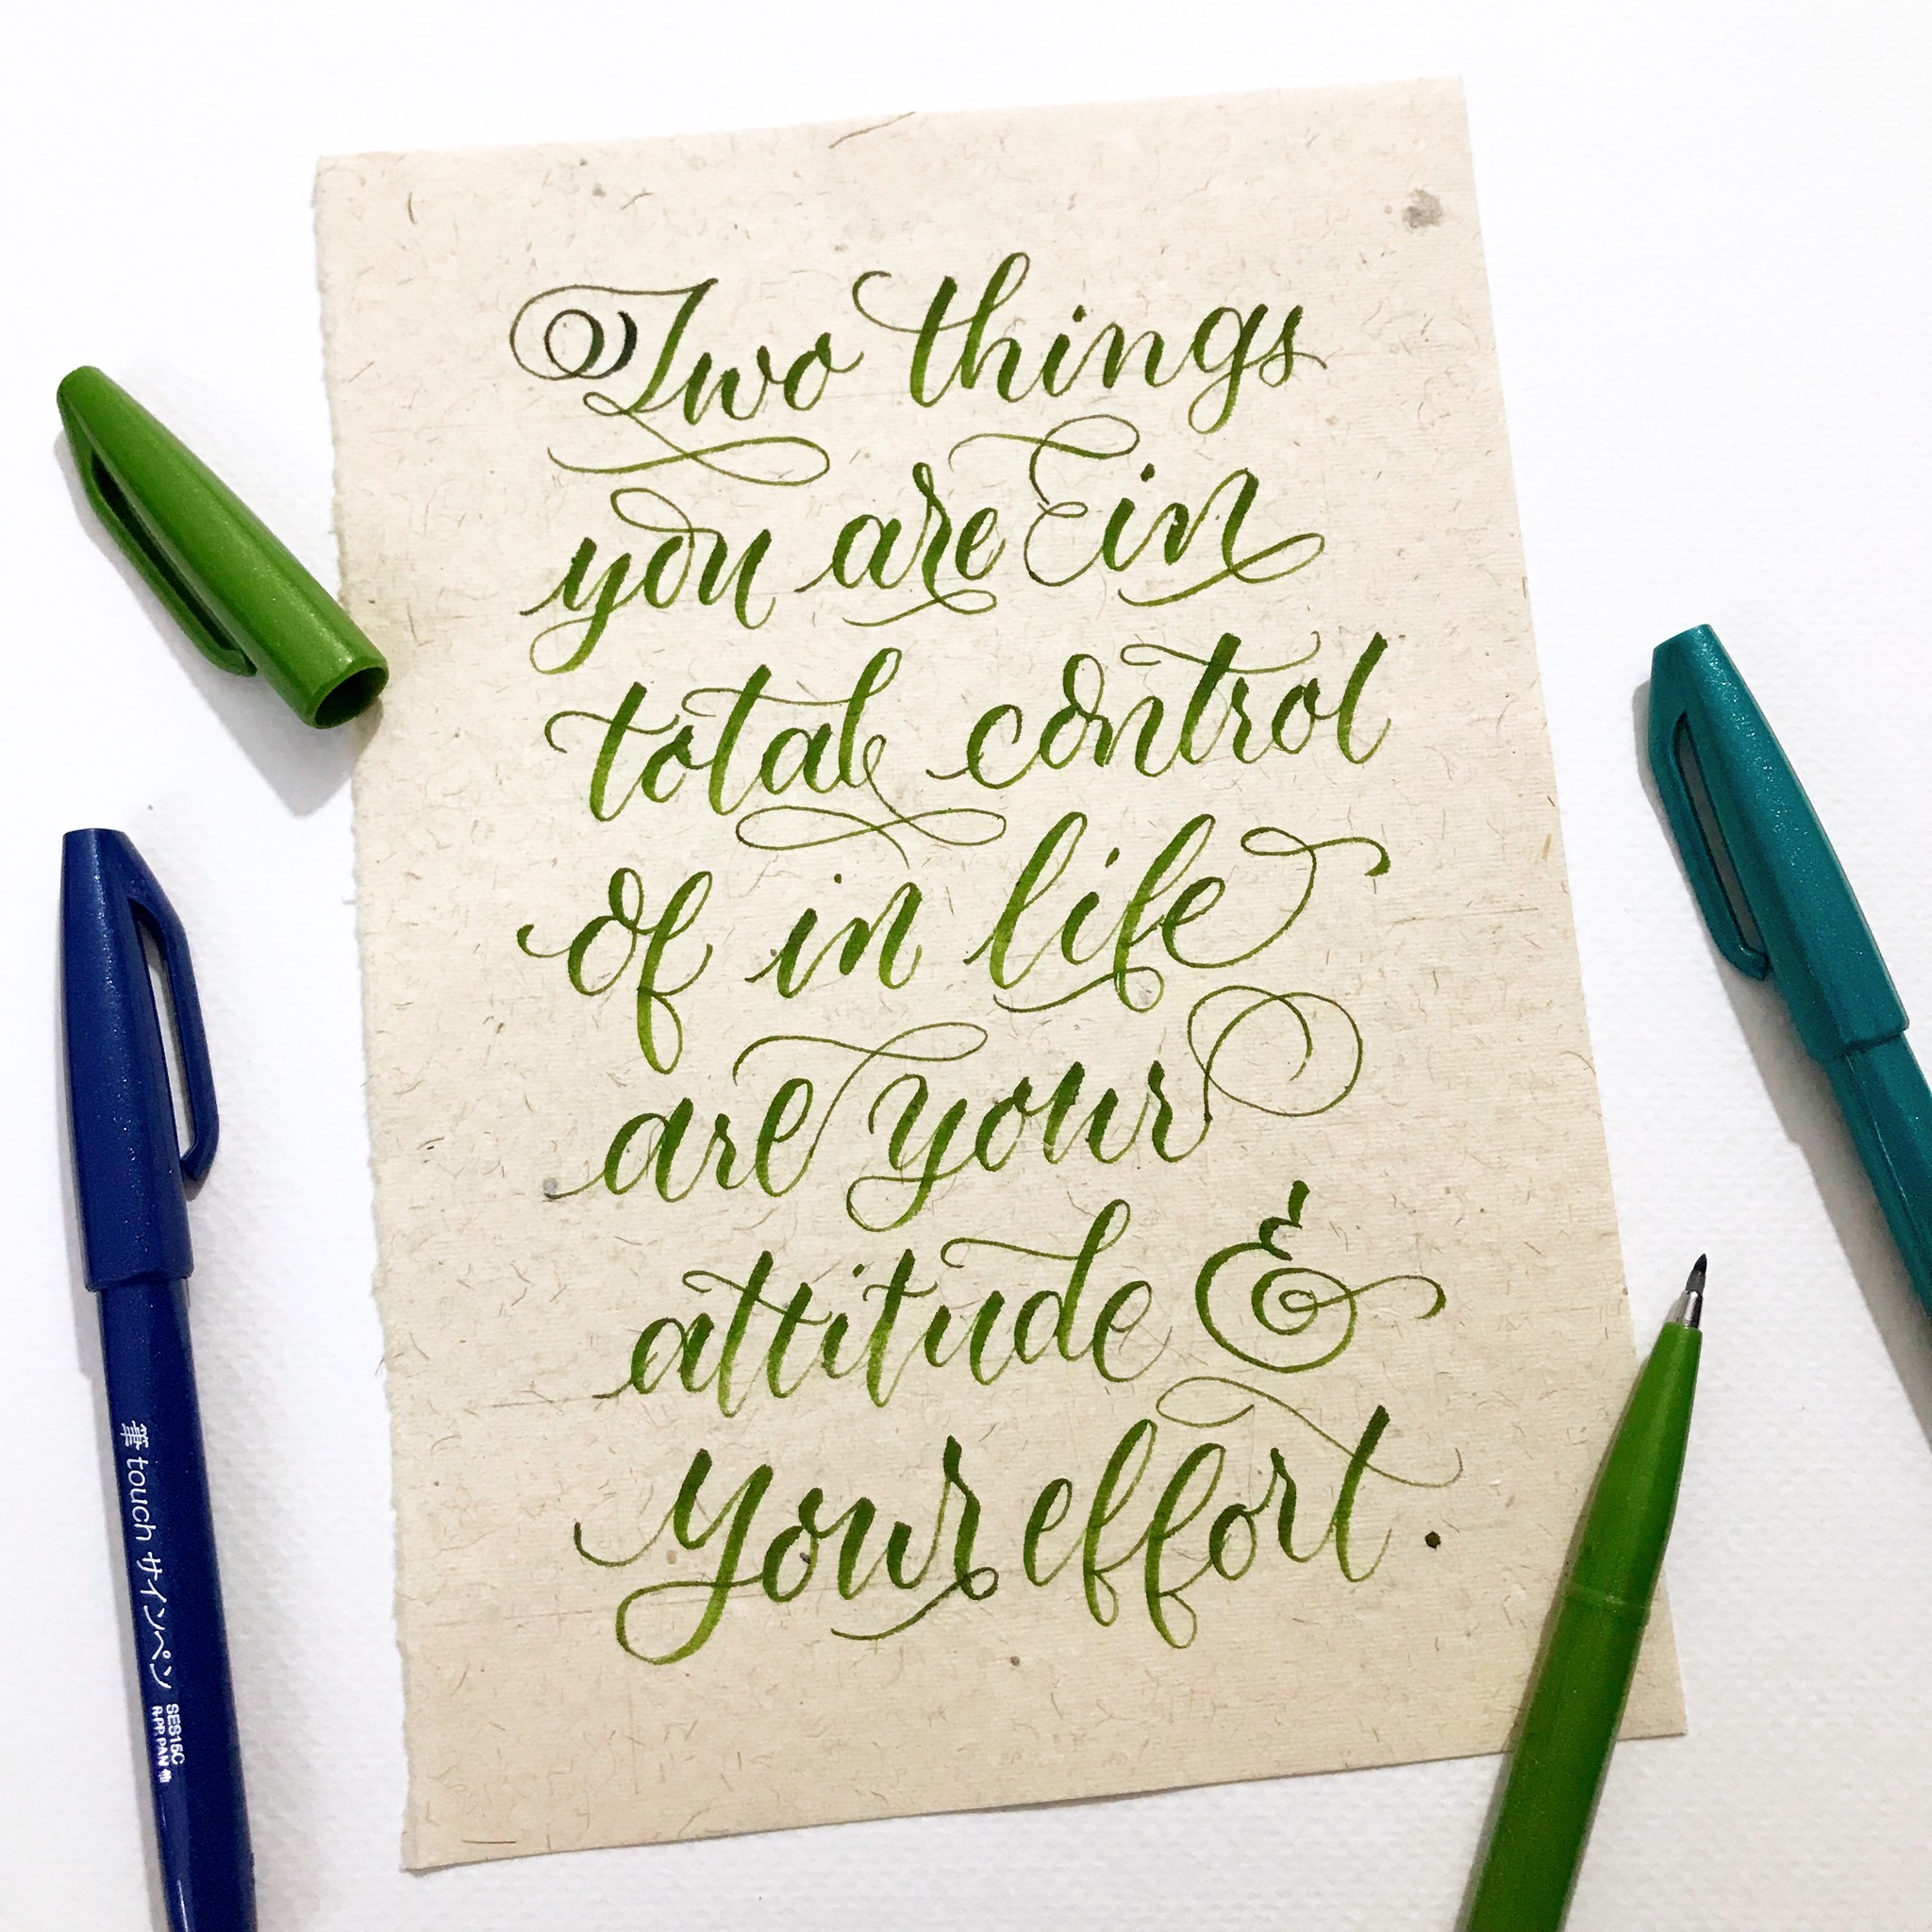 Two things
you are in
total control
of in life
are your
attitude &
your effort.
筆touch サインペン
SES15C